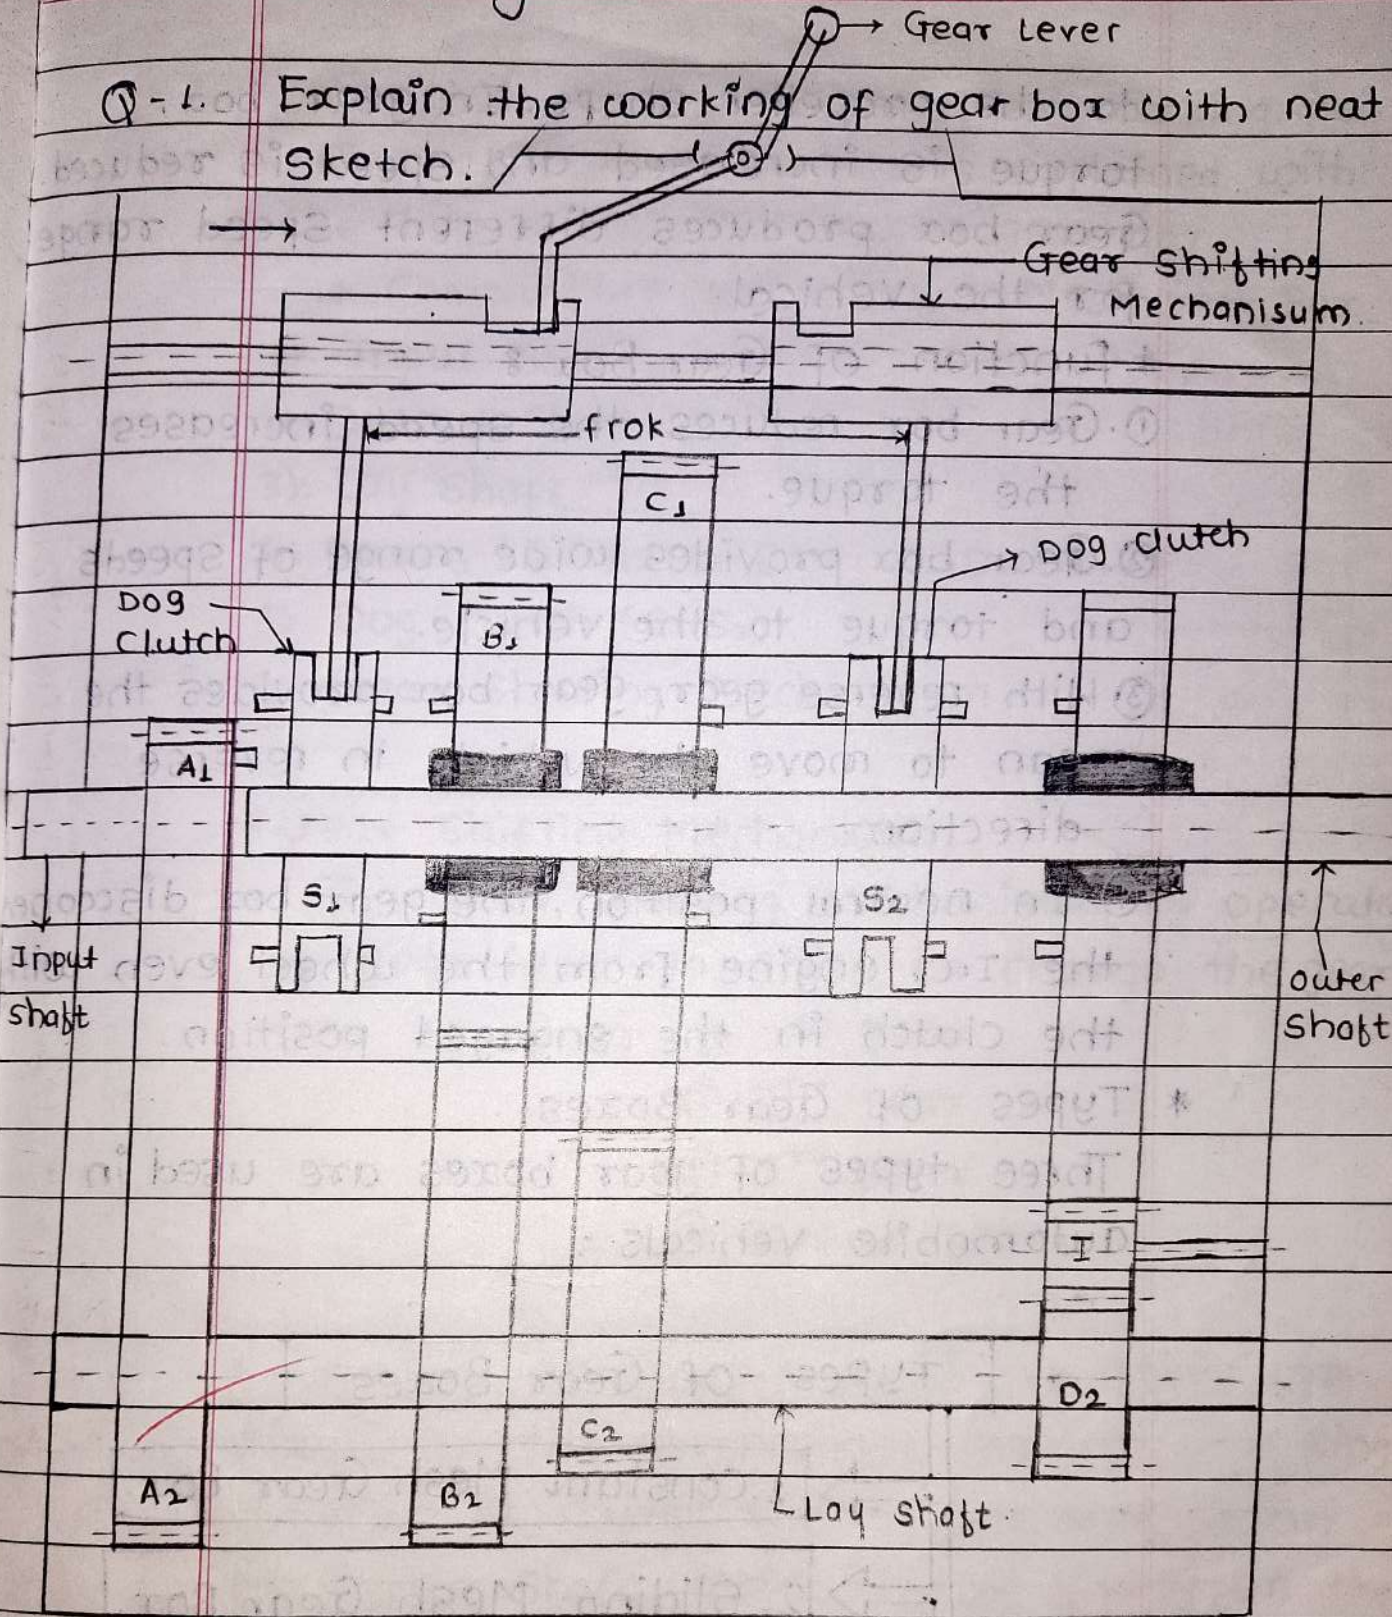 Gear Lever
Q-1. Explain the woorking of gear box with neat
Sketch.
Gear Shifting
Mechanisum.
frok
C1
Dog Clutch
Dog
Clutch
B1
A1
S1
S2
Input
shaft
outer
Shaft
I
D2
C2
A2
B2
Lay shaft.